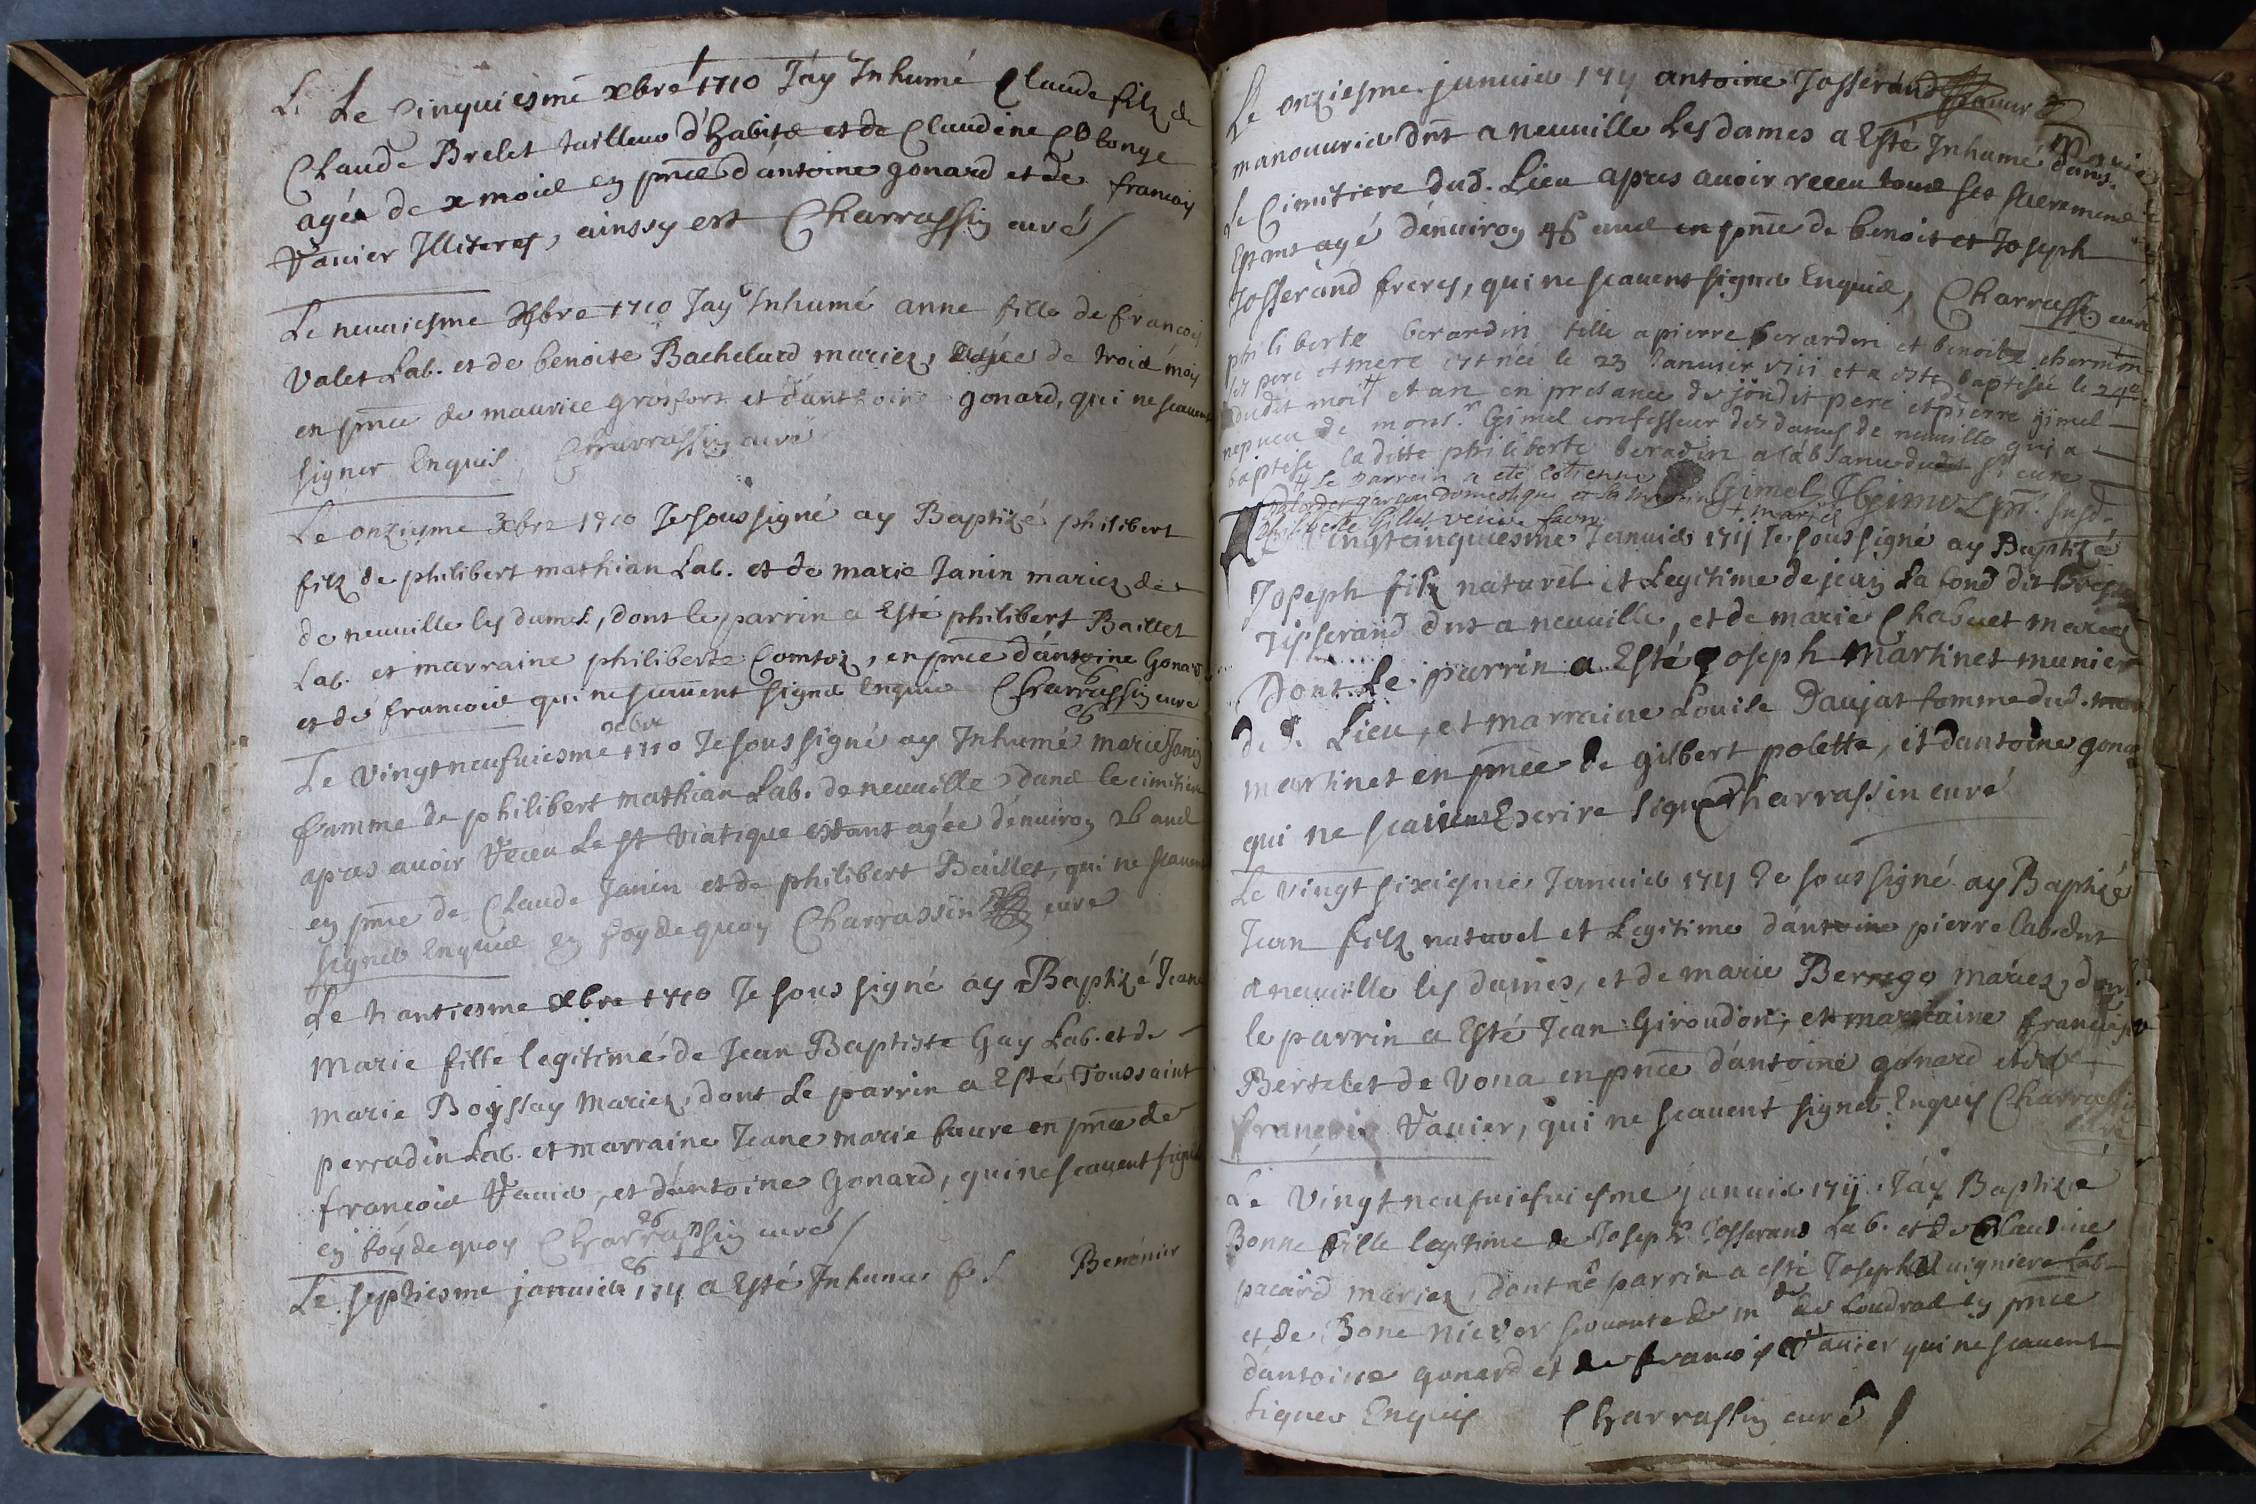 Le Cinquiesme xbre 1710 Jay Inhumé Claude filz de
Claude Brelet tailleur d'habits et de Claudine Collonge
agée de x mois en pnce d'antoine gonard et de francois
Vauier Illiteres, ainssy est Charrassin curé
Le neuuiesme Xbre 1710 Jay Inhumé anne fille de francois
Valet Lab. et de benoite Bachelard mariez, agée de trois mois
en pnce de maurice grosfort et d'anthoine gonard, qui ne scauent
signer Enquis, Charrassin curé
Le onziesme Xbre 1710 Je soussigné ay Baptizé philibert
filz de philibert mathian Lab. et de marie Janin mariez de
de neuuille les dames, dont le parrin a Esté philibert Baillet
Lab. et marraine philiberte Comtoz, en pnce d'antoine Gonard
et de francois qui ne scauent signer Enquis Charrassin curé
xbre
Le vingtneufuiesme 1710 Je soussigné ay Inhumé marie Janin
famme de philibert mathian Lab. de neuuille dans le cimitiere
apres auoir Receu Le st Viatique estant agée d'enuiron 26 ans
en pnce de Claude Janin et de philibert Baillet, qui ne scauent
signer Enquis en foy de quoy Charrassin curé
Le trantiesme xbre 1710 Je sous signé ay Baptizé Jeane
Marie fille legitime de Jean Baptiste Gay Lab. et de
Marie Boyssay Mariez, dont Le parrin a Esté Toussaint
perradin Lab. et marraine Jeane marie faure en pnce de
francois Vauier, et d'antoine Gonard, qui ne scauent signer
en foy de quoy Charrassin curé
Le septiesme januier 1711 a Esté Inhumé Benonier
Le onziesme januier 1711 antoine Josserand
manouurier dnt a neuuille Les dames a Esté Inhumé dans
Le Cimitiere dud. Lieu apres auoir receu tous ses sacremens
Estant agé d'enuiron 45 ans en pnce de benoit et Joseph
Josserand freres, qui ne scauent signer Enquis, Charrassin curé
philiberte berardin fille a pierre berardin et benoite chermon
ses pere et mere est née le 23 Januier 1711 et a esté baptisée le 24e
dudit mois et an en presance de sondit pere et pierre gimel
nepueu de monsr Gimel confesseur des dames de neuuille qui a
baptisé laditte philiberte beradin a l'absance dudit sr curé
# Le parrein a eté Estienne
garcon domestique et la
Gimel JGimel
philiberte Gillet veuve faure
vingtcinquiesme Januier 1711 Je soussigné ay Baptizé
Joseph filz naturel et Legitime de jean La fond dit
Tisserand dnt a neuuille, et de marie Chabuet mariez
Dont Le parrin a Esté Joseph Martinet munier
dud. Lieu, et marraine Louise Daujat famme dud.
martinet en pnce de gilbert polette, et d'antoine gonard
qui ne scauent Escrire signer Charrassin curé
Le vingt sixiesme Januier 1711 Je soussigné ay Baptizé
Jean filz naturel et Legitime d'antoine pierre lab. dnt
a neuuille les dames, et de marie Berrogo mariez, dont
le parrin a Esté Jean Giroudon, et marraine francoise
Bertelet de Vona en pnce d'antoine gonard et de
francois Vauier, qui ne scauent signer Enquis Charrassin
curé
Le Vingtneufuiesuiesme januier 1711 Jay Baptizé
Bonne fille legitime de Joseph Josserand Lab. et de Claudine
pacard mariez, dont le parrin a esté Joseph Lab.
et de Bone Nieuor seruante de mde de loudras en pnce
d'antoine gonard et de francois Vauier qui ne scauent
signer Enquis Charrassin curé